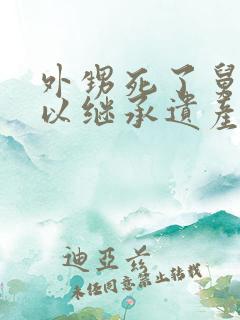 外甥死了舅
以继承遗产
迪亚兹
未经同意禁止转载